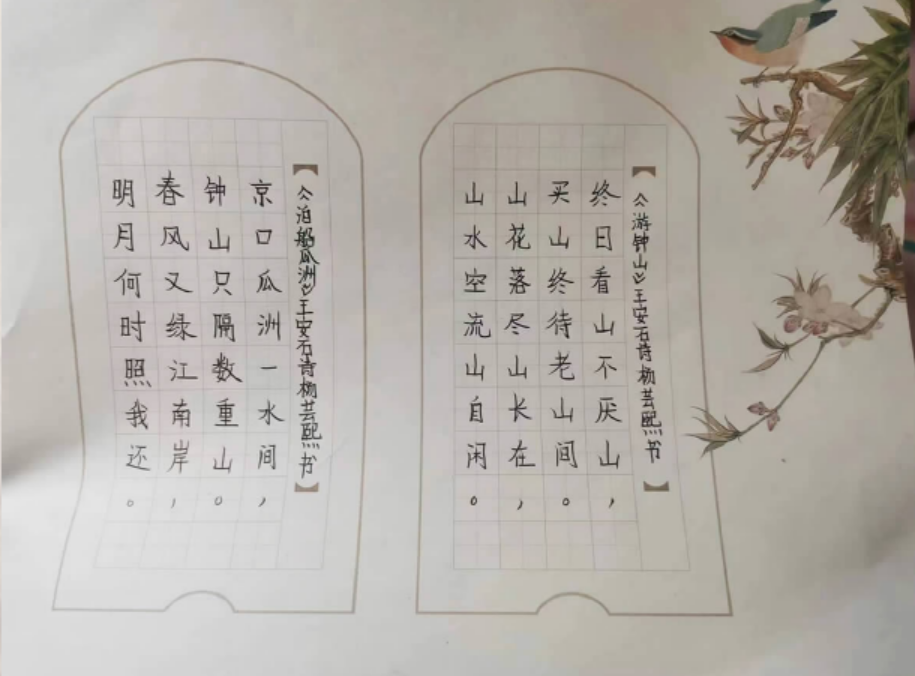 【《游钟山》王安石诗杨芸熙书】
终日看山不厌山，
买山终待老山间。
山花落尽山长在，
山水空流山自闲。
【《泊船瓜洲》王安石诗杨芸熙书】
京口瓜洲一水间，
钟山只隔数重山。
春风又绿江南岸，
明月何时照我还。